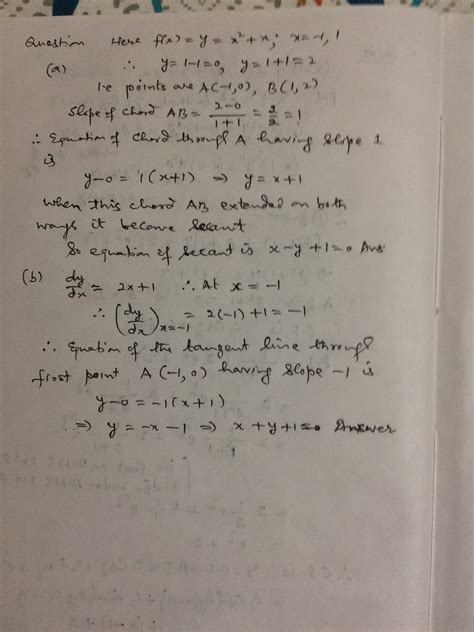 Question Here f(x) = y = x² + x; x = -1, 1
(a) ∴ y = 1-1 = 0, y = 1+1 = 2
i.e points are A(-1,0), B(1,2)
Slope of chord AB = (2-0)/(1+1) = 2/2 = 1
∴ Equation of chord through A having slope 1
is
y-0 = 1(x+1) ⇒ y = x+1
when this chord AB extended on both
ways it become secant
So equation of secant is x-y+1=0 Ans
(b) dy/dx = 2x+1 ∴ At x = -1
∴ (dy/dx)x=-1 = 2(-1)+1 = -1
∴ Equation of the tangent line through
first point A(-1,0) having slope -1 is
y-0 = -1(x+1)
⇒ y = -x-1 ⇒ x+y+1=0 Answer